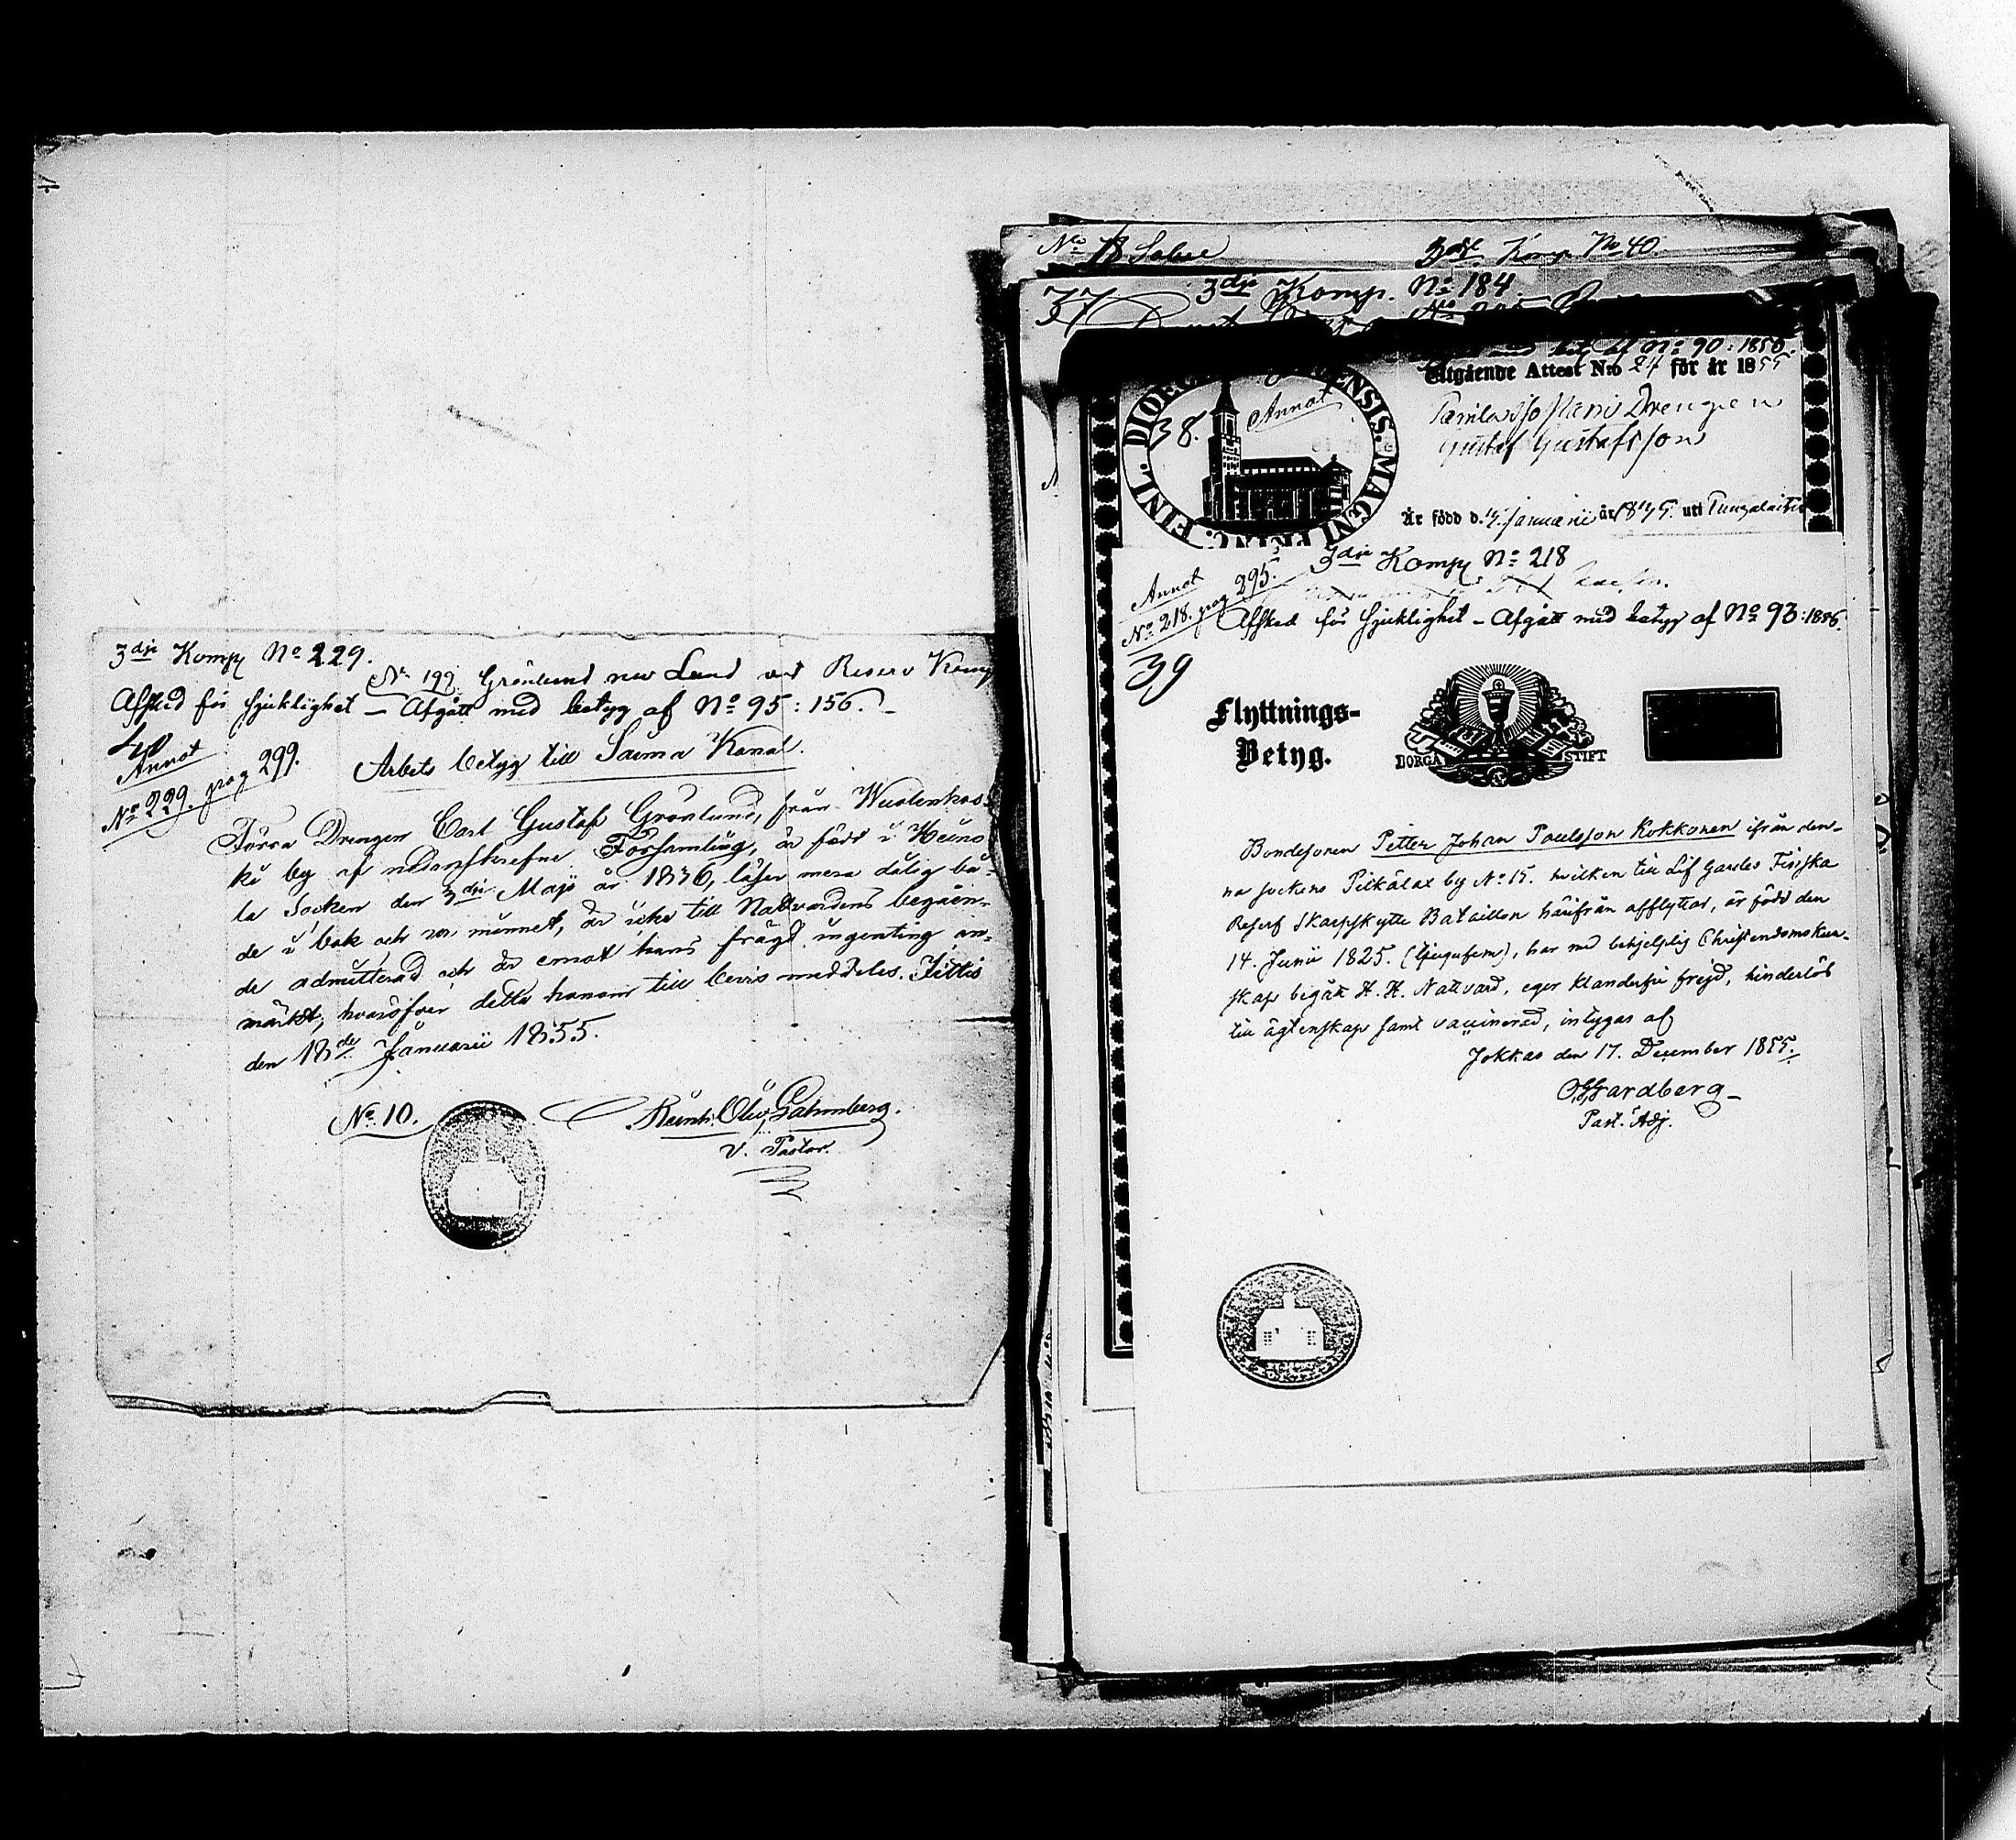 3dje Komp No 229.
No 199. Grönlund nu Lund vid Reserv Komp
Afsked för sjuklighet – Afgått med betyg af No 95: 156. –
40
Annot
No 229. pag 299.
Arbets betyg till Saima Kanal.
Förra Drengen Carl Gustaf Grönlund, från Wuolenkos-
ki by af nedanskrefne Församling, är född i Heino-
la Socken den 3dje Maji år 1836, läser mera dålig bå-
de i bok och ur minnet, är icke till Nattvardens begåen-
de admitterad och är emot hans frägd ingenting an-
märkt, hvaröfver detta honom till bevis meddeles. Jittis
den 18de Januarii 1855.
No 10.
Reinh. Olv. Gahmberg.
V. Pastor.
No 18
3dje Komp No 40.
37
3dje Komp. No 184
No 90: 1856
Utgående Attest N:o 24 för år 1855
FINL. DIOEC. MAGNI PRINC.
38.
Annot
Drengen
Gustaf Gustafsson
Är född d. Januarii år uti
3dje Komp No 218
Annot
No 218. pag 295.
Afsked för sjuklighet – Afgått med betyg af No 93: 1856.
39
Flyttnings-
Betyg.
BORGÅ STIFT
Bondesonen Petter Johan Paulsson Kokkonen ifrån den-
na sockens Pilkälax by No 15. hvilken till Lif Gardes Finska
Reserf Skarpskytte Bataillon härifrån afflyttar, är född den
14. Junii 1825. (tjugufem), har med behjelplig Christendomskun-
skap begått H. H. Nattvard, eger klanderfri frejd, hinderlös
till ägtenskap samt vaccinerad, intygas af
Jokkas den 17. December 1855.
Gardberg
Past. Adj.